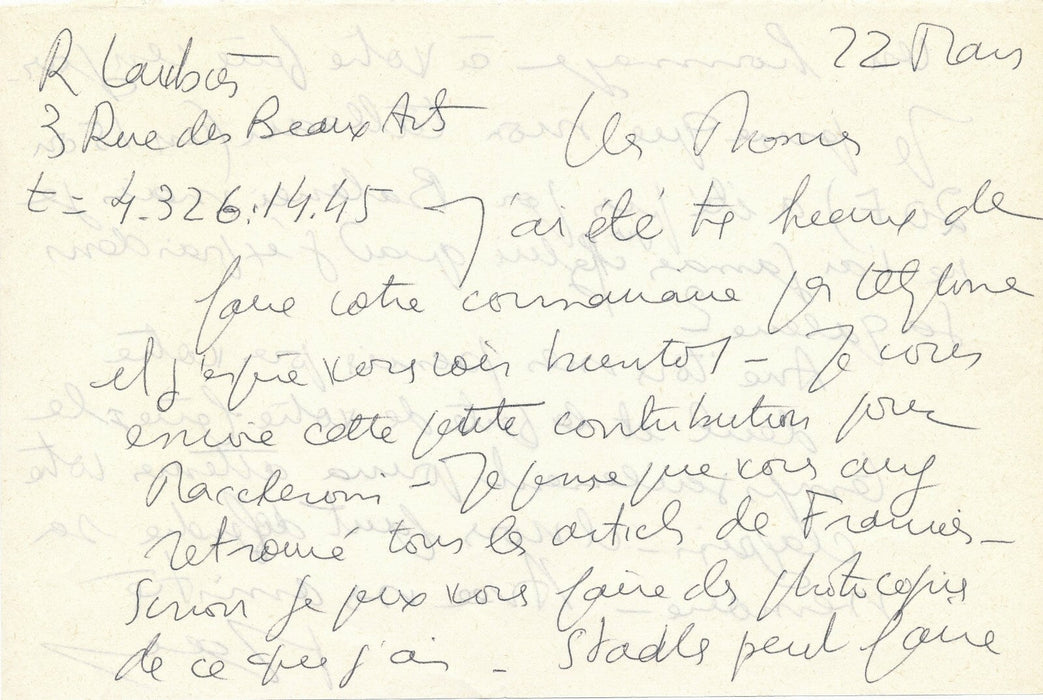 R Laubiès
22 Mars
3 Rue des Beaux Arts
t = 4.326.14.45
J'ai été très heureux de
faire votre connaissance par téléphone
et j'espère vous voir bientôt - Je vous
envoie cette petite contribution pour
Maccheroni - Je pense que vous avez
retrouvé tous les articles de Francis -
Sinon je peux vous faire des photocopies
de ce que j'ai - Stadler peut faire